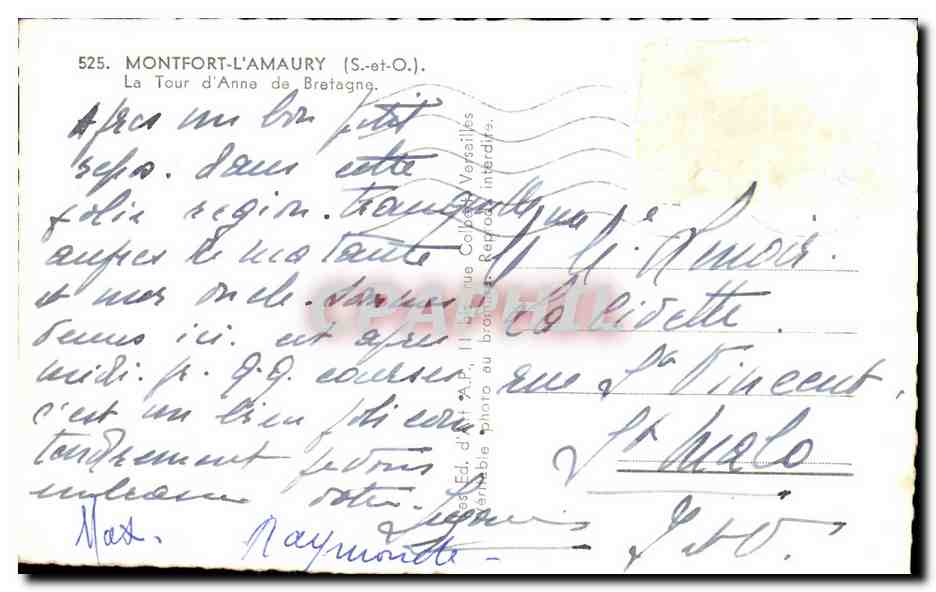 525. MONTFORT-L'AMAURY (S.-et-O.).
La Tour d'Anne de Bretagne.
Après un bon petit
repos. dans cette
jolie region. tranquille
aupres de ma tante
et mon oncle. sommes
venus ici. cet apres
midi. pr. q.q. courses.
c'est un bien joli coin.
tendrement je vous
embrasse votre
Max. Raymonde -
Les Ed. d'Art "A.P.", 11 bis, rue Colbert, Versailles
Véritable photo au bromure. Reprod. interdite.
CPAPHIL
Mme Lenoir.
La
rue St Vincent,
St Malo
I et V.